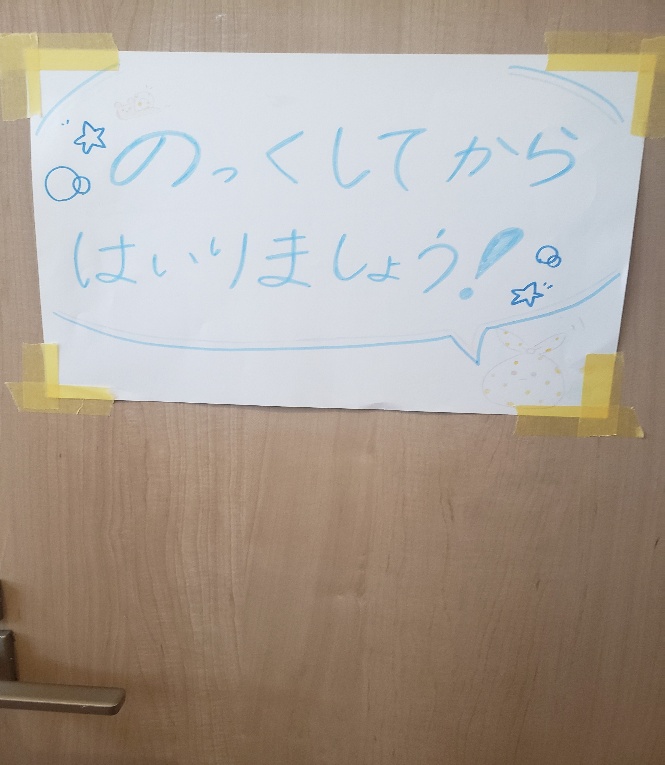 のっくしてから
はいりましょう!